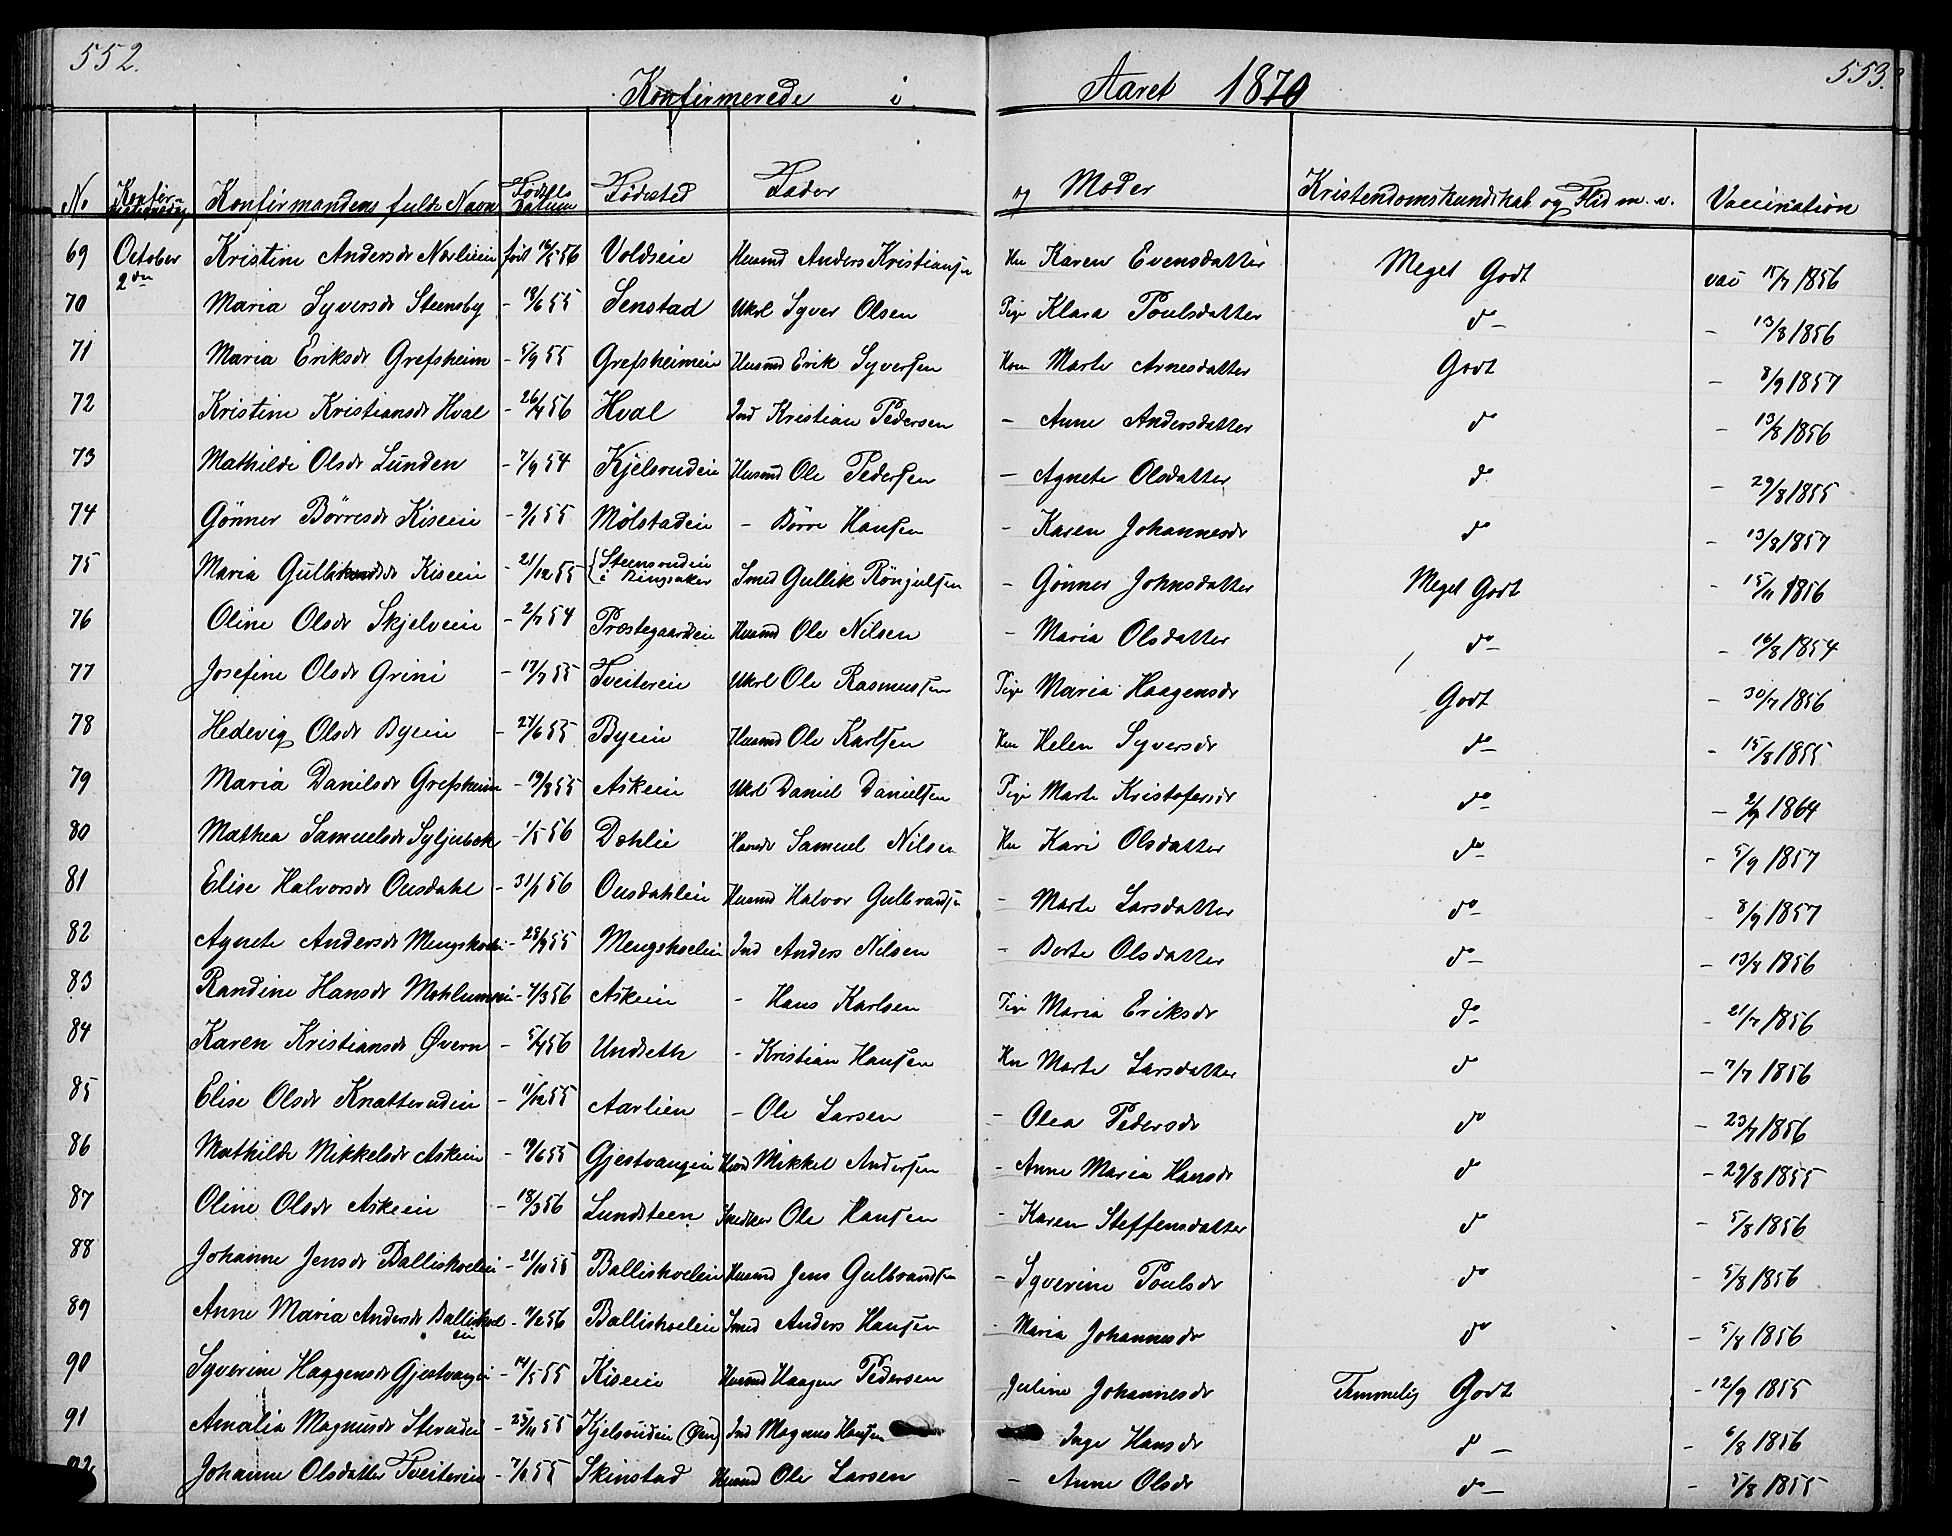 552.
553.
Konfirmerede i Aaret 1870
No Konfirmationsdag Konfirmandens fulde Navn Fødsels Datum Fødested Fader og Moder Kristendomskundskab og Flid m. v. Vaccination
69 October 2den Kristine Andersdr Nærlieein født 12/5 56 Voldseie Husmd Anders Kristiansen Hu Karen Evensdatter Meget Godt vac 15/7 1856
70 Maria Syversdr Steensby - 18/6 55 Senstad Ukrl Syver Olsen Pige Klara Poulsdatter do - 13/8 1856
71 Maria Eriksdr Grefsheim - 5/9 55 Grefsheimeie Husmd Erik Syversen Kone Marte Arnesdatter Godt - 8/9 1857
72 Kristine Kristiansdr Hval - 26/4 56 Hval Ind Kristian Pedersen - Anne Andersdatter do - 13/8 1856
73 Mathilde Olsdr Lunden - 7/9 54 Kjelsrudeie Husmd Ole Pedersen - Agnete Olsdatter do - 29/8 1855
74 Gönner Börresdr Kiseie - 9/1 55 Mølstadeie - Börre Hansen - Karen Johannesdr do - 13/8 1857
75 Maria Gulliksdr Kiseie - 21/12 55 Steensrudeie i Ringsaker Smed Gullik Rönjulsen - Gönner Johnsdatter Meget Godt - 15/11 1856
76 Oline Olsdr Skjelveie - 2/7 54 Præstegaardeie Husmd Ole Nilsen - Maria Olsdatter do - 16/8 1854
77 Josefine Olsdr Grini - 17/7 55 Tveitereie Ukrl Ole Rasmussen Pige Maria Haagensdr Godt - 30/7 1856
78 Hedevig Olsdr Byeie - 27/6 55 Byeie Husmd Ole Karlsen Hu Helen Syversdr do - 15/8 1855
79 Maria Danilsdr Grefsheim - 19/8 55 Askeie Ukrl Daniel Danielsen Pige Marte Kristofersdr do - 2/7 1864
80 Mathea Samuelsdr Syljubæk - 1/5 56 Dæhlie Samuel Nilsen Hu Kari Olsdatter do - 5/9 1857
81 Elise Halvorsdr Ousdahl - 31/1 56 Ousdahleie Husmd Halvor Gulbrandsen - Marte Larsdatter do - 8/9 1857
82 Agnete Andersdr - 28/9 55 Mengshoeleie Ind Anders Nilsen - Dorte Olsdatter do - 13/8 1856
83 Randine Hansdr - 4/3 56 Askeie - Hans Karlsen Pige Maria Eriksdr do - 21/7 1856
84 Karen Kristiansdr Øvern - 5/4 56 Undseth - Kristian Hansen Hu Marte Larsdatter do - 7/7 1856
85 Elise Olsdr Knatterudeie - 11/12 55 Aarlien - Ole Larsen - Olea Pedersdr do - 23/7 1856
86 Mathilde Mikkelsdr Askeie - 19/6 55 Gjestvangeie Mikkel Andersen - Anne Maria Hansdr do - 29/8 1855
87 Oline Olsdr Askeie - 18/3 56 Lundsteen Snedker Ole Hansen - Karen Steffensdatter do - 5/8 1856
88 Johanne Jensdr Ballishoeleie - 21/10 55 Ballishoeleie Husmd Jens Gulbrandsen - Syverine Poulsdr do - 5/8 1856
89 Anne Maria Andersdr Ballishoel eie - 11/2 56 Ballishoeleie Smed Anders Hansen - Maria Johannesdr do - 5/8 1856
90 Syverine Haagensdr Gjestvangeie - 14/5 55 Kiseie Husmd Haagen Pedersen Juline Johannesdr Temmelig Godt - 12/9 1855
91 Amalia Magnusdr - 25/11 55 Kjelsrudeie Ind Magnus Hansen Inge Hansdr do - - 6/8 1856
92 Johanne Olsdatter Tveitereie - 7/6 55 Skinstad Husmd Ole Larsen - Anne Olsdr do - - 5/8 1855